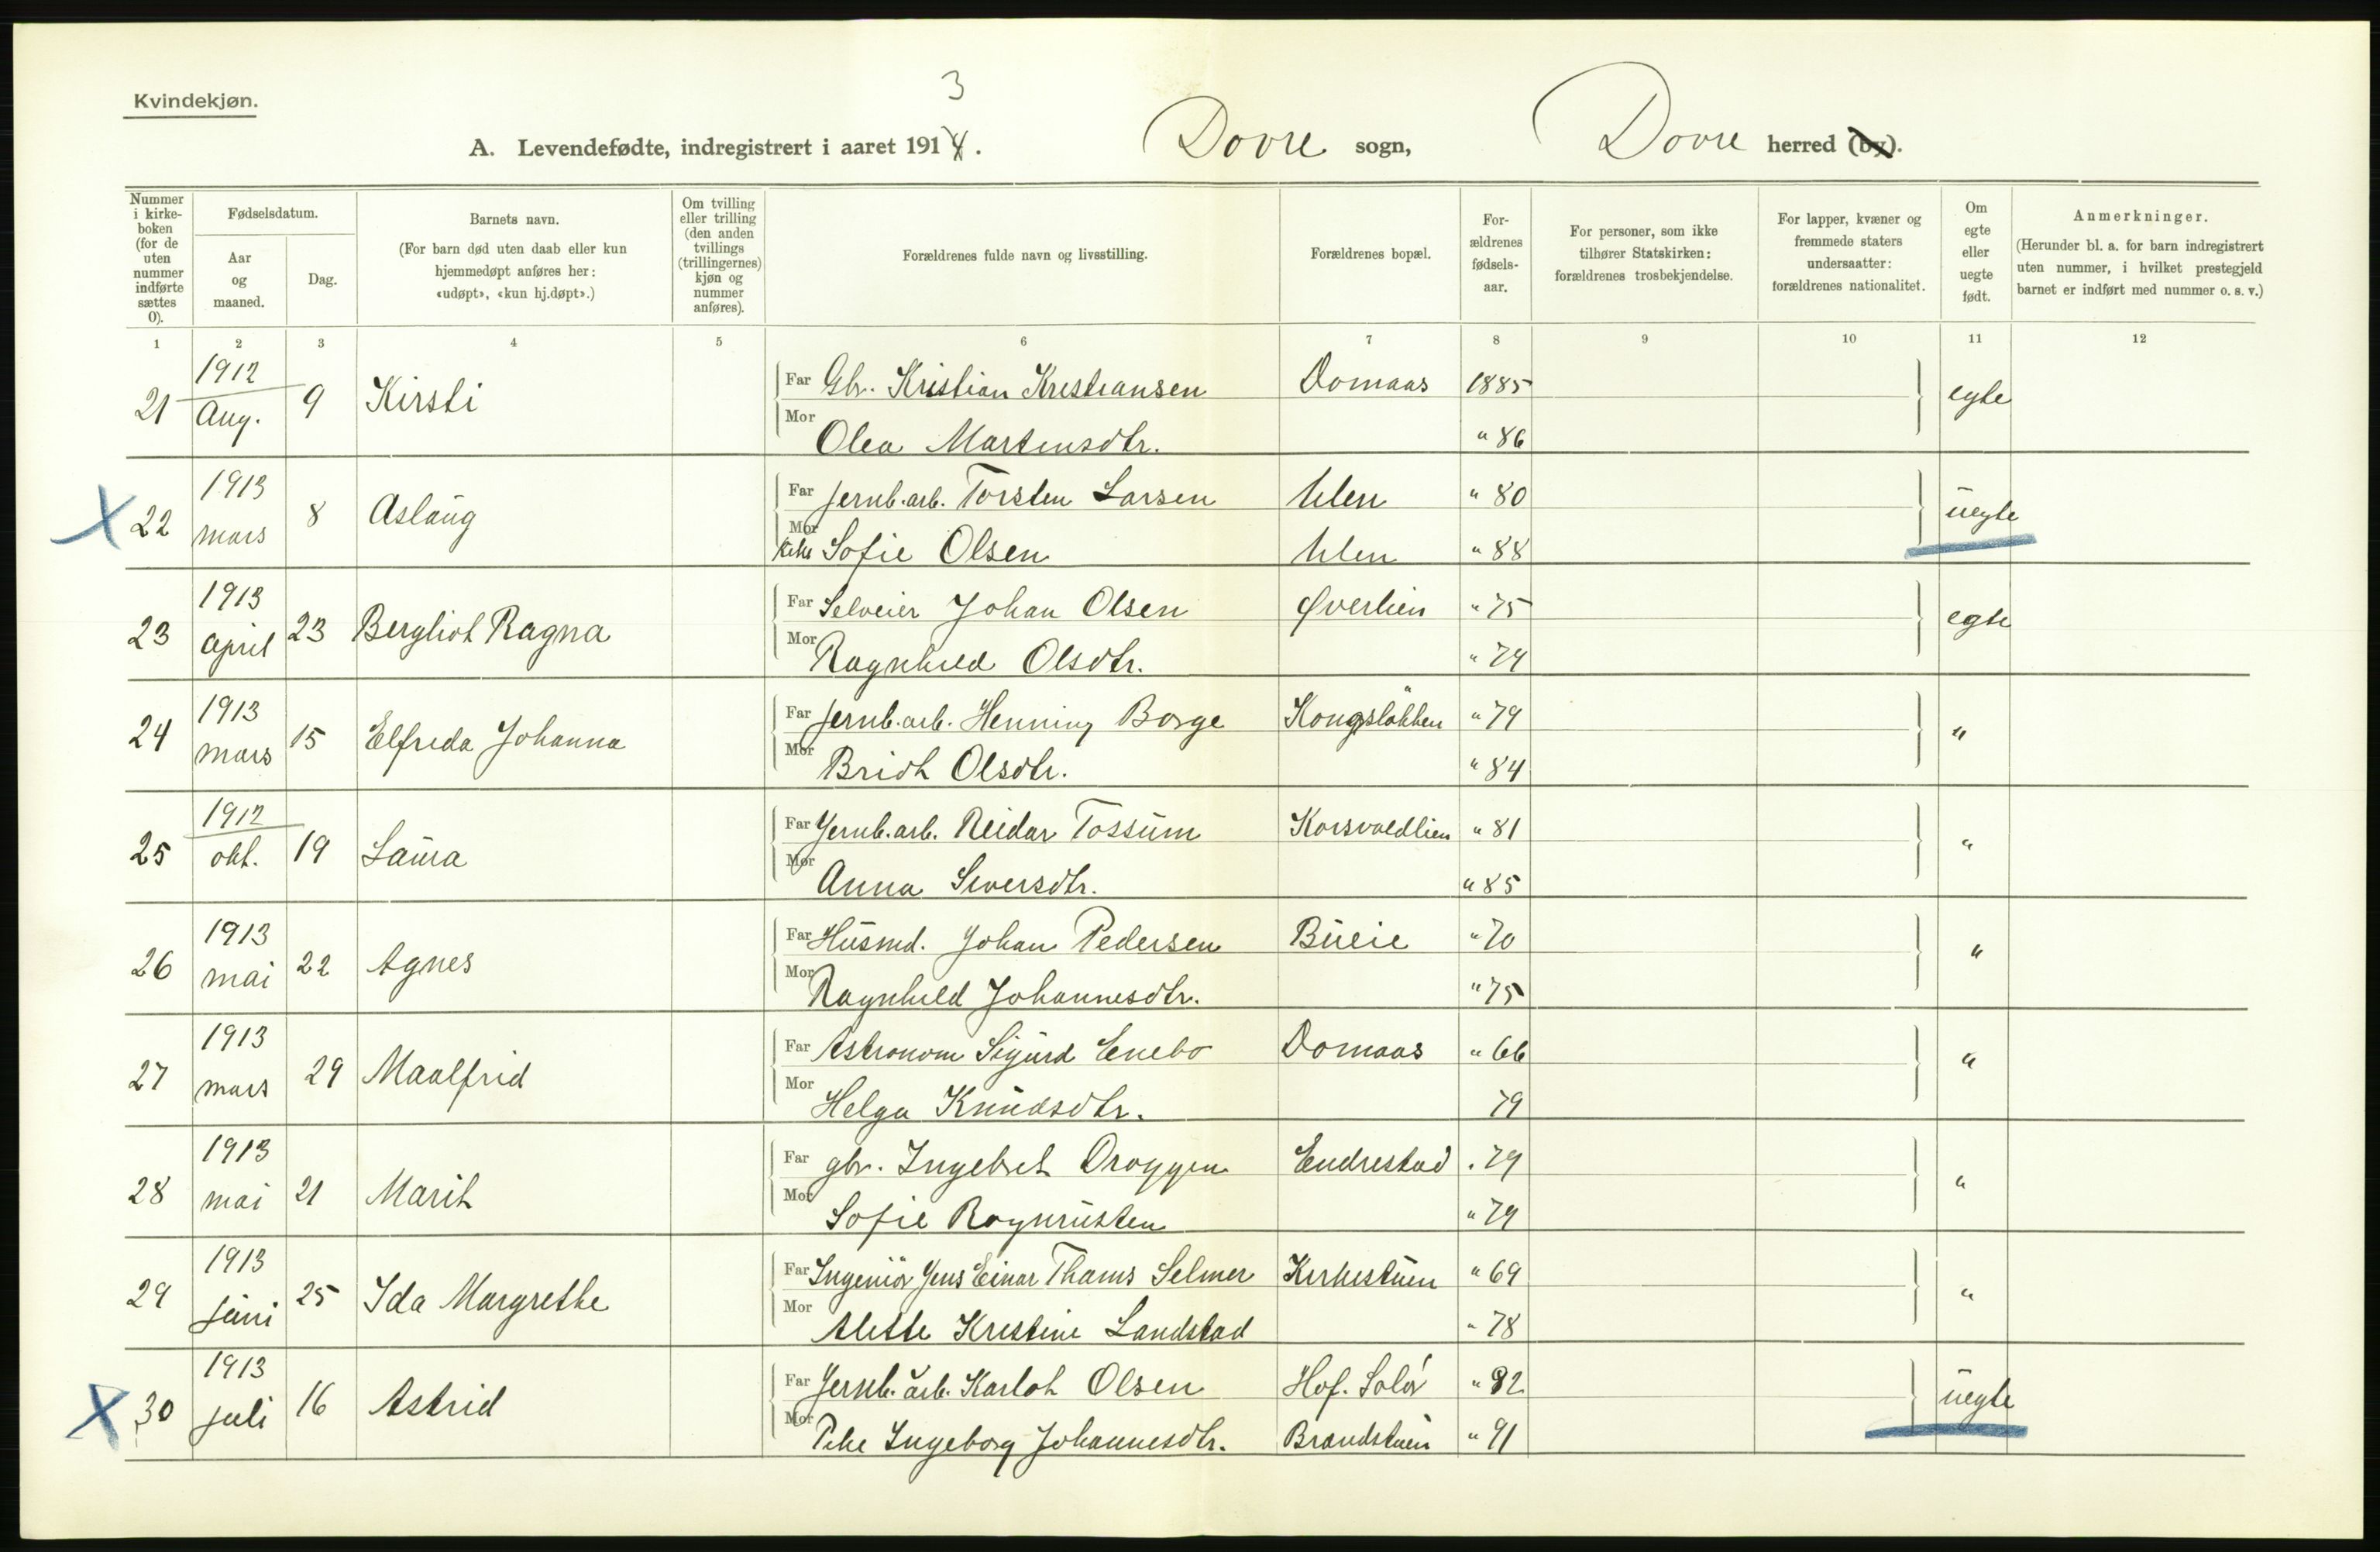 Kvindekjøn.
3
A. Levendefødte, indregistrert i aaret 1914. Dovre sogn, Dovre herred (by).
Nummer i kirkeboken (for de uten nummer indførte sættes 0).
Fødselsdatum.
Aar og maaned.
Dag.
Barnets navn.
(For barn død uten daab eller kun hjemmedøpt anføres her: «udøpt», «kun hj.døpt».)
Om tvilling eller trilling (den anden tvillings (trillingernes) kjøn og nummer anføres).
Forældrenes fulde navn og livsstilling.
Forældrenes bopæl.
Forældrenes fødselsaar.
For personer, som ikke tilhører Statskirken: forældrenes trosbekjendelse.
For lapper, kvæner og fremmede staters undersaatter: forældrenes nationalitet.
Om egte eller uegte født.
Anmerkninger.
(Herunder bl. a. for barn indregistrert uten nummer, i hvilket prestegjeld barnet er indført med nummer o. s. v.)
1 2 3 4 5 6 7 8 9 10 11 12
21 1912 Aug. 9 Kirsti Far Gbr. Kristian Kristiansen Domaas 1885 egte
Mor Olea Martinsdtr. " 86
22 1913 mars 8 Aslaug Far Jernb.arb. Torsten Larsen Ulen " 80 uegte
Mor Pike Sofie Olsen Ulen " 88
23 1913 april 23 Bergliot Ragna Far Selveier Johan Olsen Øverlien " 75 egte
Mor Ragnhild Olsdtr. " 74
24 1913 mars 15 Elfrida Johanna Far Jernb.arb. Henning Borge Kongsløkken " 79 "
Mor Brit Olsdtr. " 84
25 1912 okt. 19 Laura Far Jernb.arb. Reidar Tossum Korsvoldlien " 81 "
Mor Anna Siversdtr. " 85
26 1913 mai 22 Agnes Far Husmd. Johan Pedersen Bueie " 70 "
Mor Ragnhild Johannesdtr. " 75
27 1913 mars 29 Maalfrid Far Astronom Sigurd Enebo Domaas " 66 "
Mor Helga Knudsdtr. 79
28 1913 mai 21 Marit Far gbr. Ingebret Droggen Endrestad " 79 "
Mor Sofie Rognrusten " 79
29 1913 juni 25 Ida Margrethe Far Ingeniør Jens Einar Thams Selmer Kirkestuen " 69 "
Mor Alette Kristine Landstad " 78
30 1913 juli 16 Astrid Far Jernb. arb. Karlot Olsen Hof. Solør " 92 uegte
Mor Pike Ingeborg Johannesdtr. Brandstuen " 91